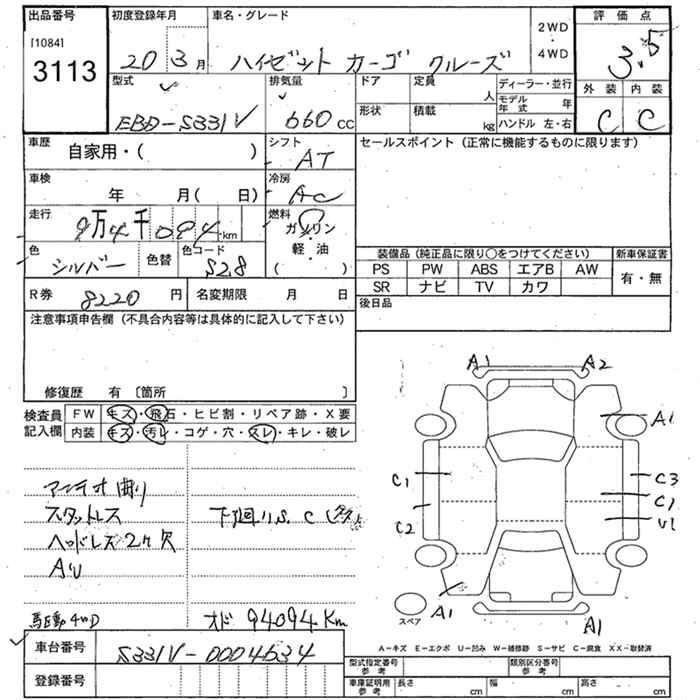 出品番号 初度登録年月 車名・グレード 2WD・4WD 評価点
[1084]
3113
20 3月 ハイゼット カーゴ クルーズ 3.5
型式 排気量 ドア 定員 人 ディーラー・並行 外装 内装
EBD-S331V 660cc 形状 積載 kg モデル年式 年 ハンドル 左・右 C C
車歴 自家用・( ) シフト AT セールスポイント(正常に機能するものに限ります)
車検 年 月( 日) 冷房 AC
走行 9万4千094km 燃料 ガソリン・軽・油 ( )
色 シルバー 色替 色コード S28
装備品(純正品に限り○をつけてください) 新車保証書
PS PW ABS エアB AW 有・無
SR ナビ TV カワ
R券 8220円 名変期限 月 日 後日品
注意事項申告欄(不具合内容等は具体的に記入して下さい)
修復歴 有〔箇所 〕
検査員記入欄 FW キズ・飛石・ヒビ割・リペア跡・X要
内装 キズ・汚レ・コゲ・穴・スレ・キレ・破レ
A1 A2
A1
C1 C3
C1
C2 U1
A1 A1
スペア
アンテナ曲り
スタットレス
ヘッドレス2ケ欠
AU
下廻りS.C
4WD オド 94094Km
A-キズ E-エクボ U-凹み W-補修跡 S-サビ C-腐食 XX-取替済
車台番号 S331V-0004634
登録番号
型式指定番号 参考 類別区分番号 参考
車庫証明用 参考 長さ cm 幅 cm 高さ cm